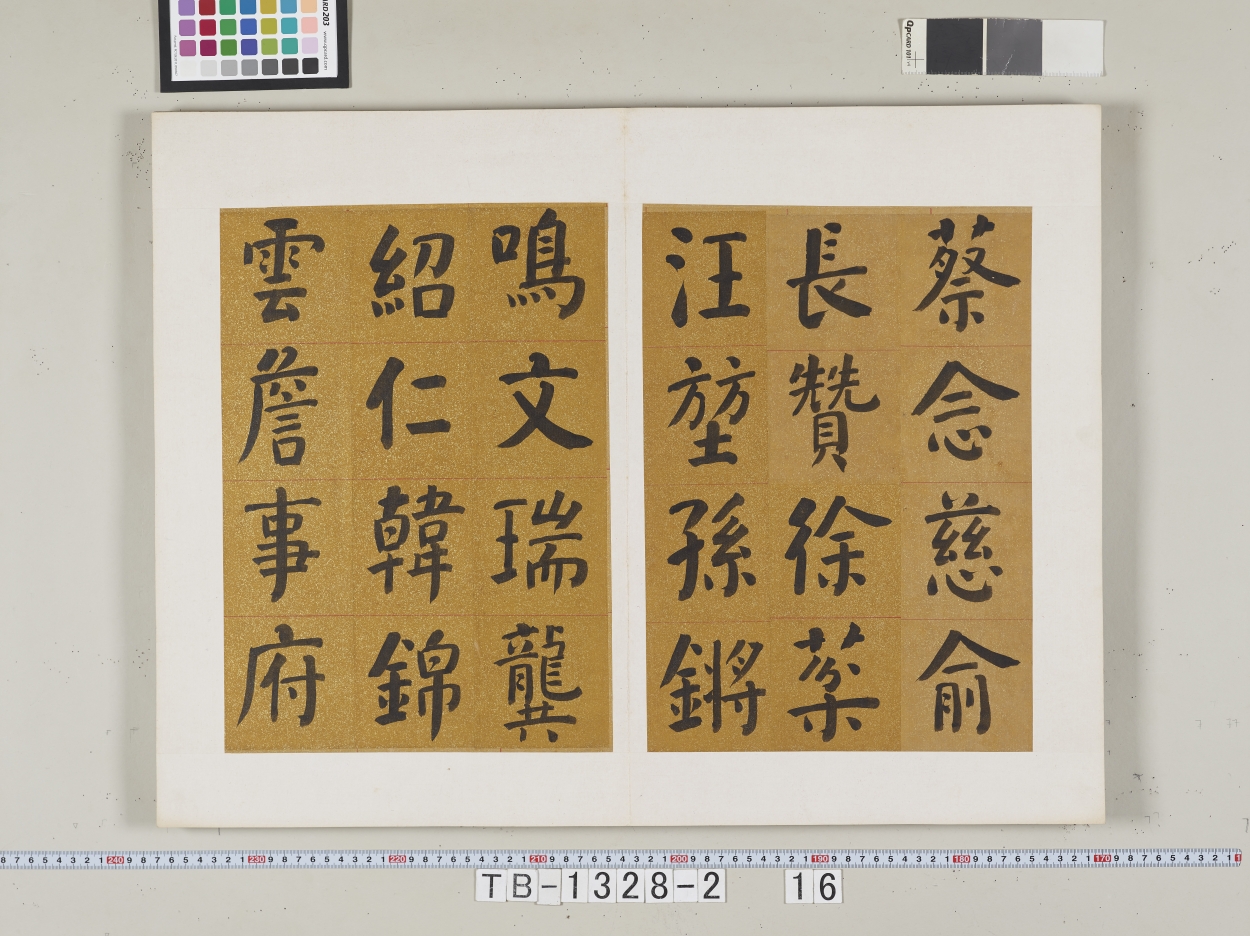 蔡念慈俞
長贊徐棻
汪堃孫鏘
鳴文瑞龔
紹仁韓錦
雲詹事府
TB-1328-2 16